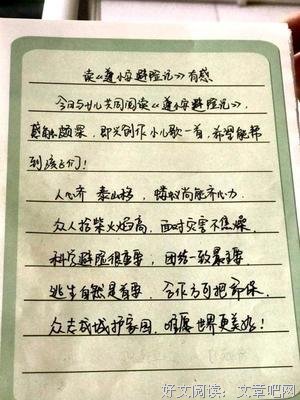 读《蓮小宝避险记》有感
今日与女儿共同阅读《蓮小宝避险记》,
感触颇深,即兴创作小儿歌一首,希望能帮
到孩子们!
人心齐 泰山移,蝼蚁尚能齐心力.
众人拾柴火焰高,面对灾害不焦燥.
科学避险很重要,团结一致最主要.
逃生自然是首要,合作方可把命保.
众志成城护家园,唯愿世界更美好!
好文阅读:文章吧网